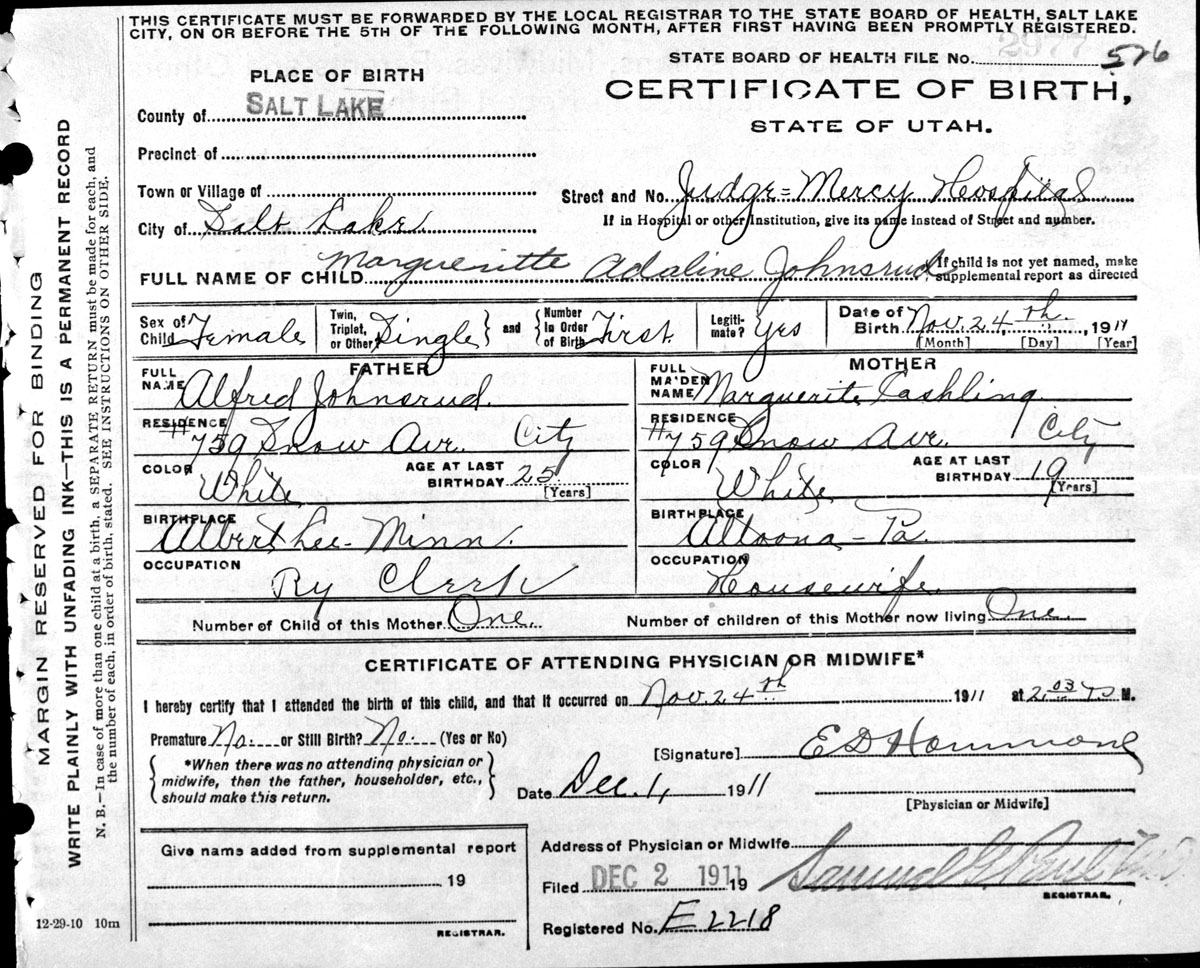 THIS CERTIFICATE MUST BE FORWARDED BY THE LOCAL REGISTRAR TO THE STATE BOARD OF HEALTH, SALT LAKE
CITY, ON OR BEFORE THE 5TH OF THE FOLLOWING MONTH, AFTER FIRST HAVING BEEN PROMPTLY REGISTERED.
2977
STATE BOARD OF HEALTH FILE No. 576
PLACE OF BIRTH
CERTIFICATE OF BIRTH,
STATE OF UTAH.
County of SALT LAKE
Precinct of
Town or Village of
Street and No. Judge=Mercy Hospital
City of Salt Lake
If in Hospital or other Institution, give its name instead of Street and number.
FULL NAME OF CHILD Margueritte Adaline Johnsrud
If child is not yet named, make
supplemental report as directed
Sex of Child Female
Twin, Triplet, or Other Single
and
Number in Order of Birth First
Legiti-mate? Yes
Date of Birth Nov. 24th, 1911
[Month] [Day] [Year]
FATHER
FULL NAME Alfred Johnsrud.
RESIDENCE #759 Snow Ave. City
COLOR White
AGE AT LAST BIRTHDAY 25
[Years]
BIRTHPLACE Albert Lee- Minn.
OCCUPATION Ry Clerk
MOTHER
FULL MAIDEN NAME Marguerite Cashling.
RESIDENCE #759 Snow Ave. City
COLOR White
AGE AT LAST BIRTHDAY 19
[Years]
BIRTHPLACE Altoona - Pa.
OCCUPATION Housewife.
Number of Child of this Mother One.
Number of children of this Mother now living One.
CERTIFICATE OF ATTENDING PHYSICIAN OR MIDWIFE*
I hereby certify that I attended the birth of this child, and that it occurred on Nov. 24th 1911 at 2:03 M.
Premature No. or Still Birth? No. (Yes or No)
*When there was no attending physician or
midwife, then the father, householder, etc.,
should make this return.
[Signature] E D
Date Dec. 1, 1911
[Physician or Midwife]
Give name added from supplemental report
19
REGISTRAR.
Address of Physician or Midwife
Filed DEC 2 1911 19
Samuel G. Paul
REGISTRAR.
Registered No. E2218
12-29-10 10m
MARGIN RESERVED FOR BINDING
WRITE PLAINLY WITH UNFADING INK—THIS IS A PERMANENT RECORD
N. B.—In case of more than one child at a birth, a SEPARATE RETURN must be made for each, and
the number of each, in order of birth, stated. SEE INSTRUCTIONS ON OTHER SIDE.